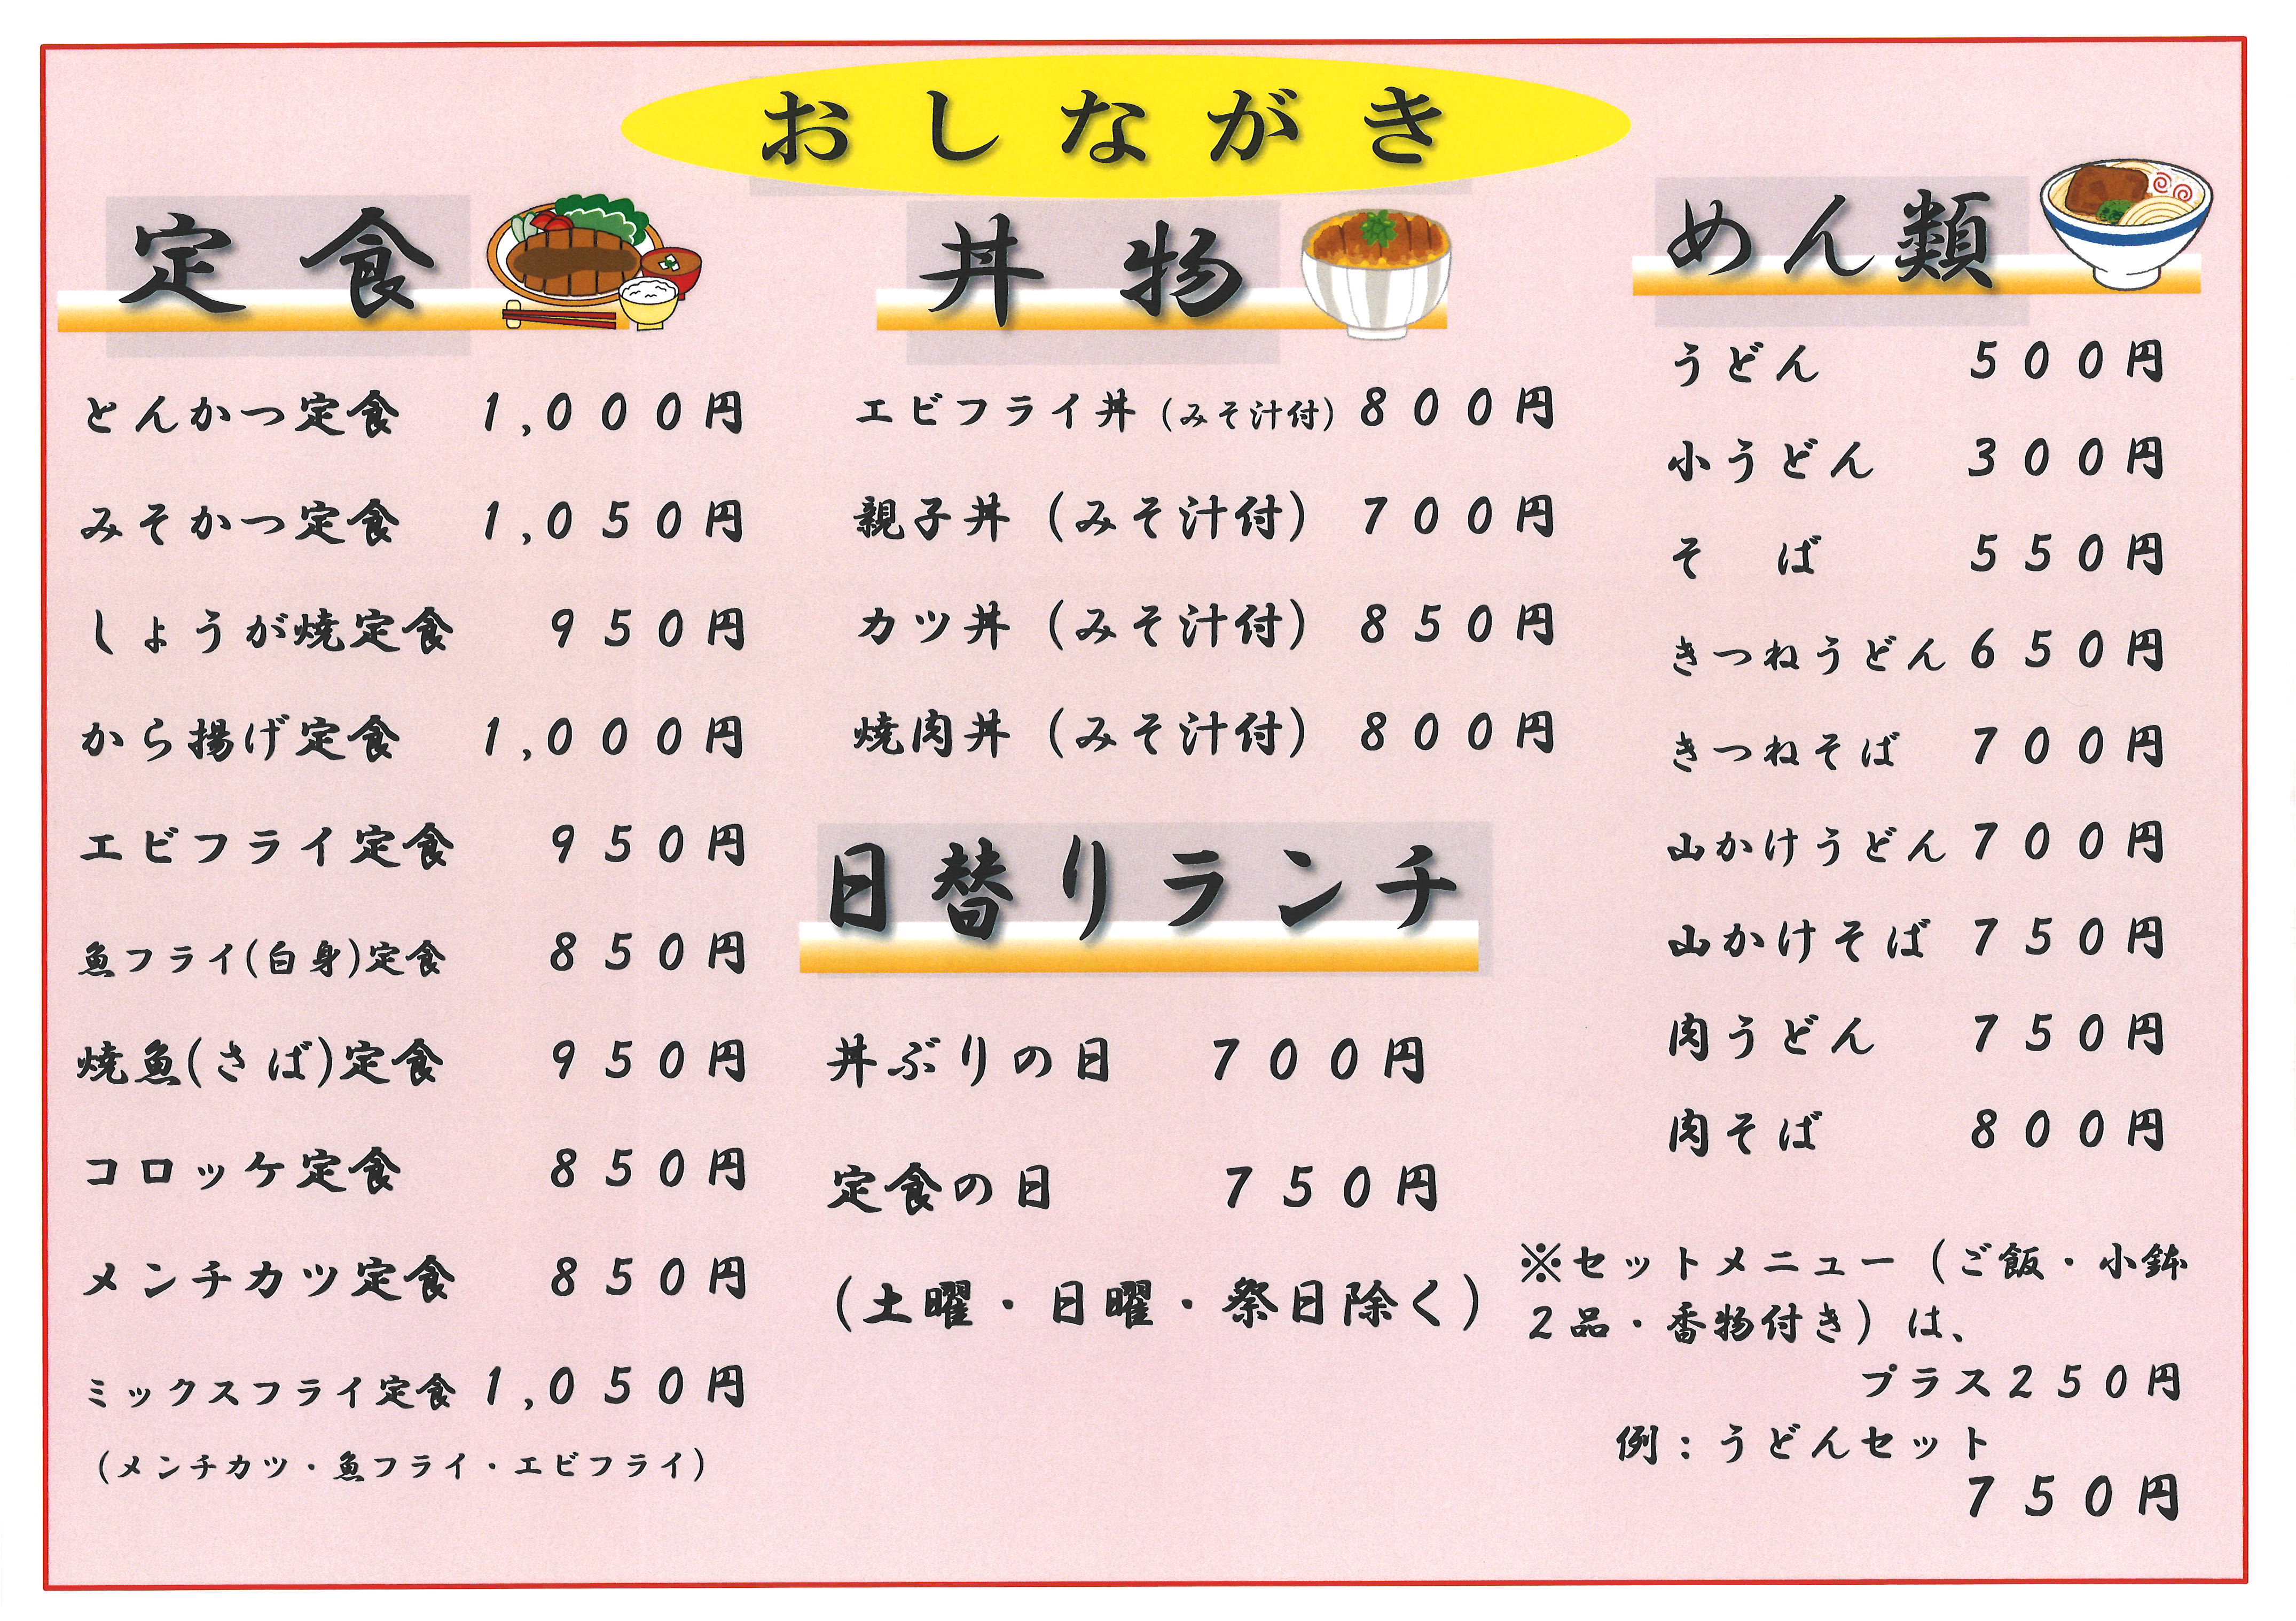 おしながき
定食
とんかつ定食 1,000円
みそかつ定食 1,050円
しょうが焼定食 950円
から揚げ定食 1,000円
エビフライ定食 950円
魚フライ(白身)定食 850円
焼魚(さば)定食 950円
コロッケ定食 850円
メンチカツ定食 850円
ミックスフライ定食 1,050円
(メンチカツ・魚フライ・エビフライ)
丼物
エビフライ丼(みそ汁付) 800円
親子丼(みそ汁付) 700円
カツ丼(みそ汁付) 850円
焼肉丼(みそ汁付) 800円
日替りランチ
丼ぶりの日 700円
定食の日 750円
(土曜・日曜・祭日除く)
めん類
うどん 500円
小うどん 300円
そ ば 550円
きつねうどん 650円
きつねそば 700円
山かけうどん 700円
山かけそば 750円
肉うどん 750円
肉そば 800円
※セットメニュー(ご飯・小鉢
2品・香物付き)は、
プラス250円
例:うどんセット
750円